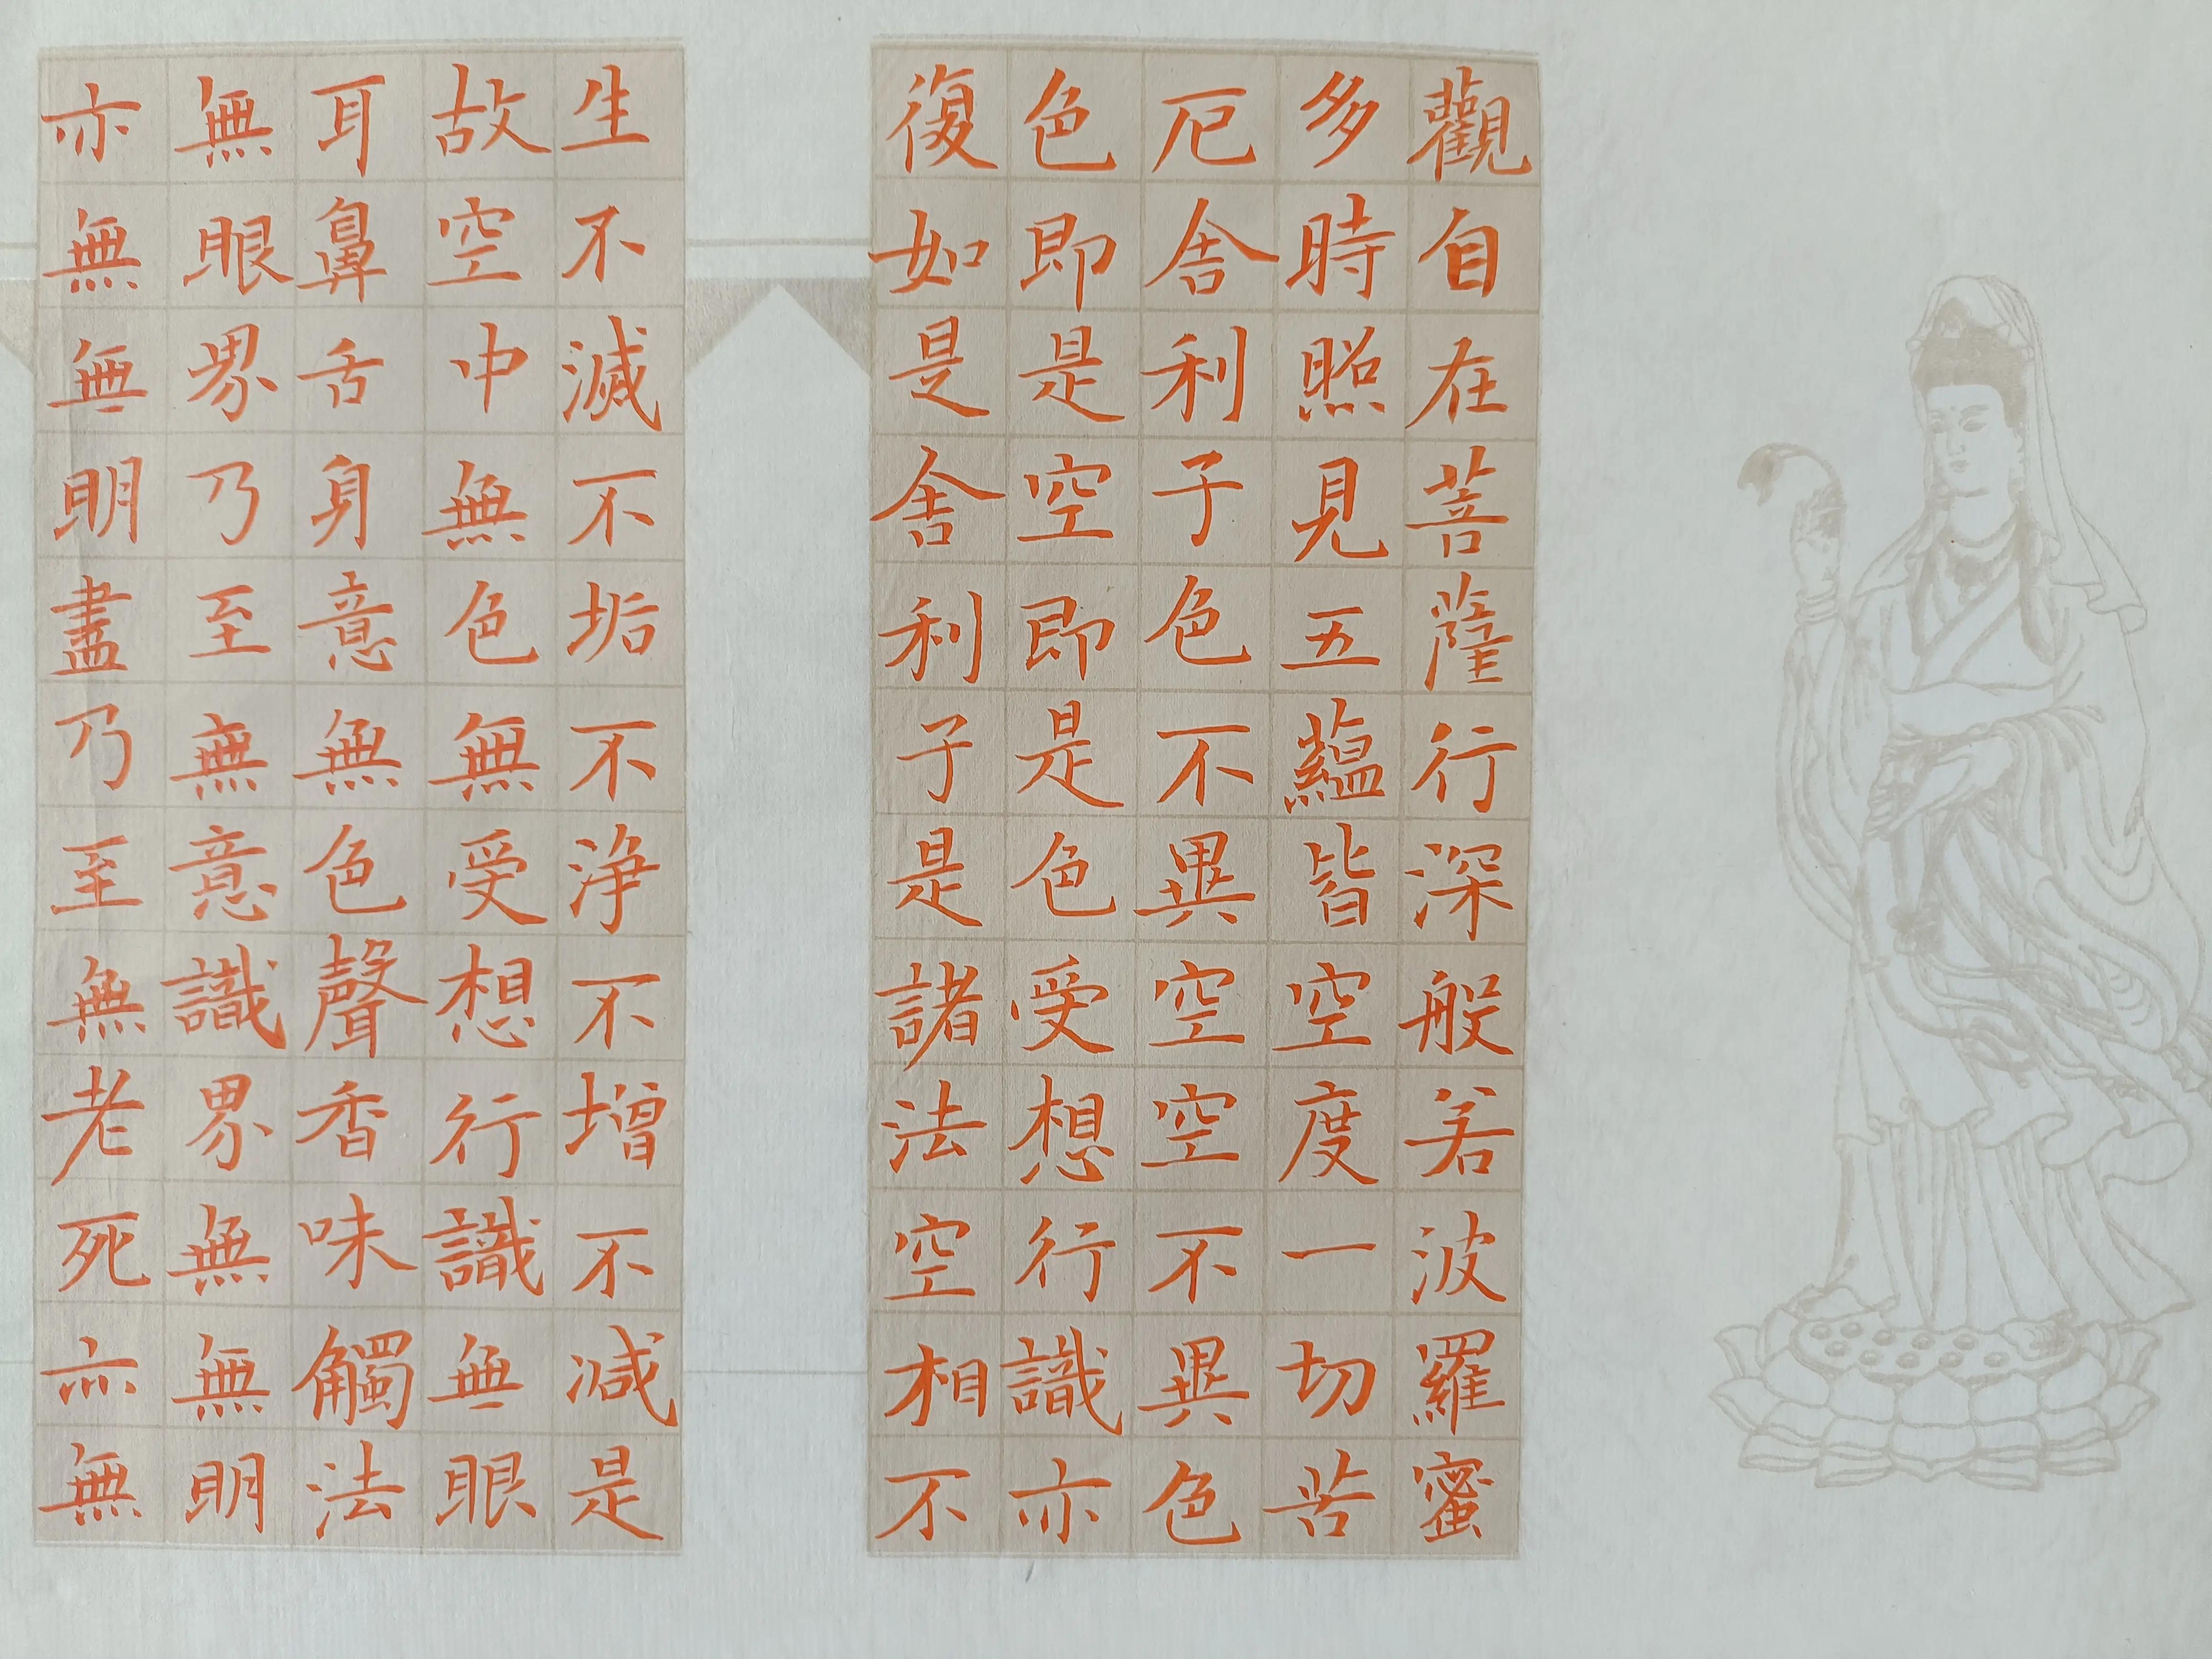 觀自在菩薩行深般若波羅蜜
多時照見五蘊皆空度一切苦
厄舍利子色不異空空不異色
色即是空即是色受想行識亦
復如是舍利子是諸法空相不
生不滅不垢不淨不增不減是
故空中無色無受想行識無眼
耳鼻舌身意無色聲香味觸法
無眼界乃至無意識界無無明
亦無無明盡乃至無老死亦無